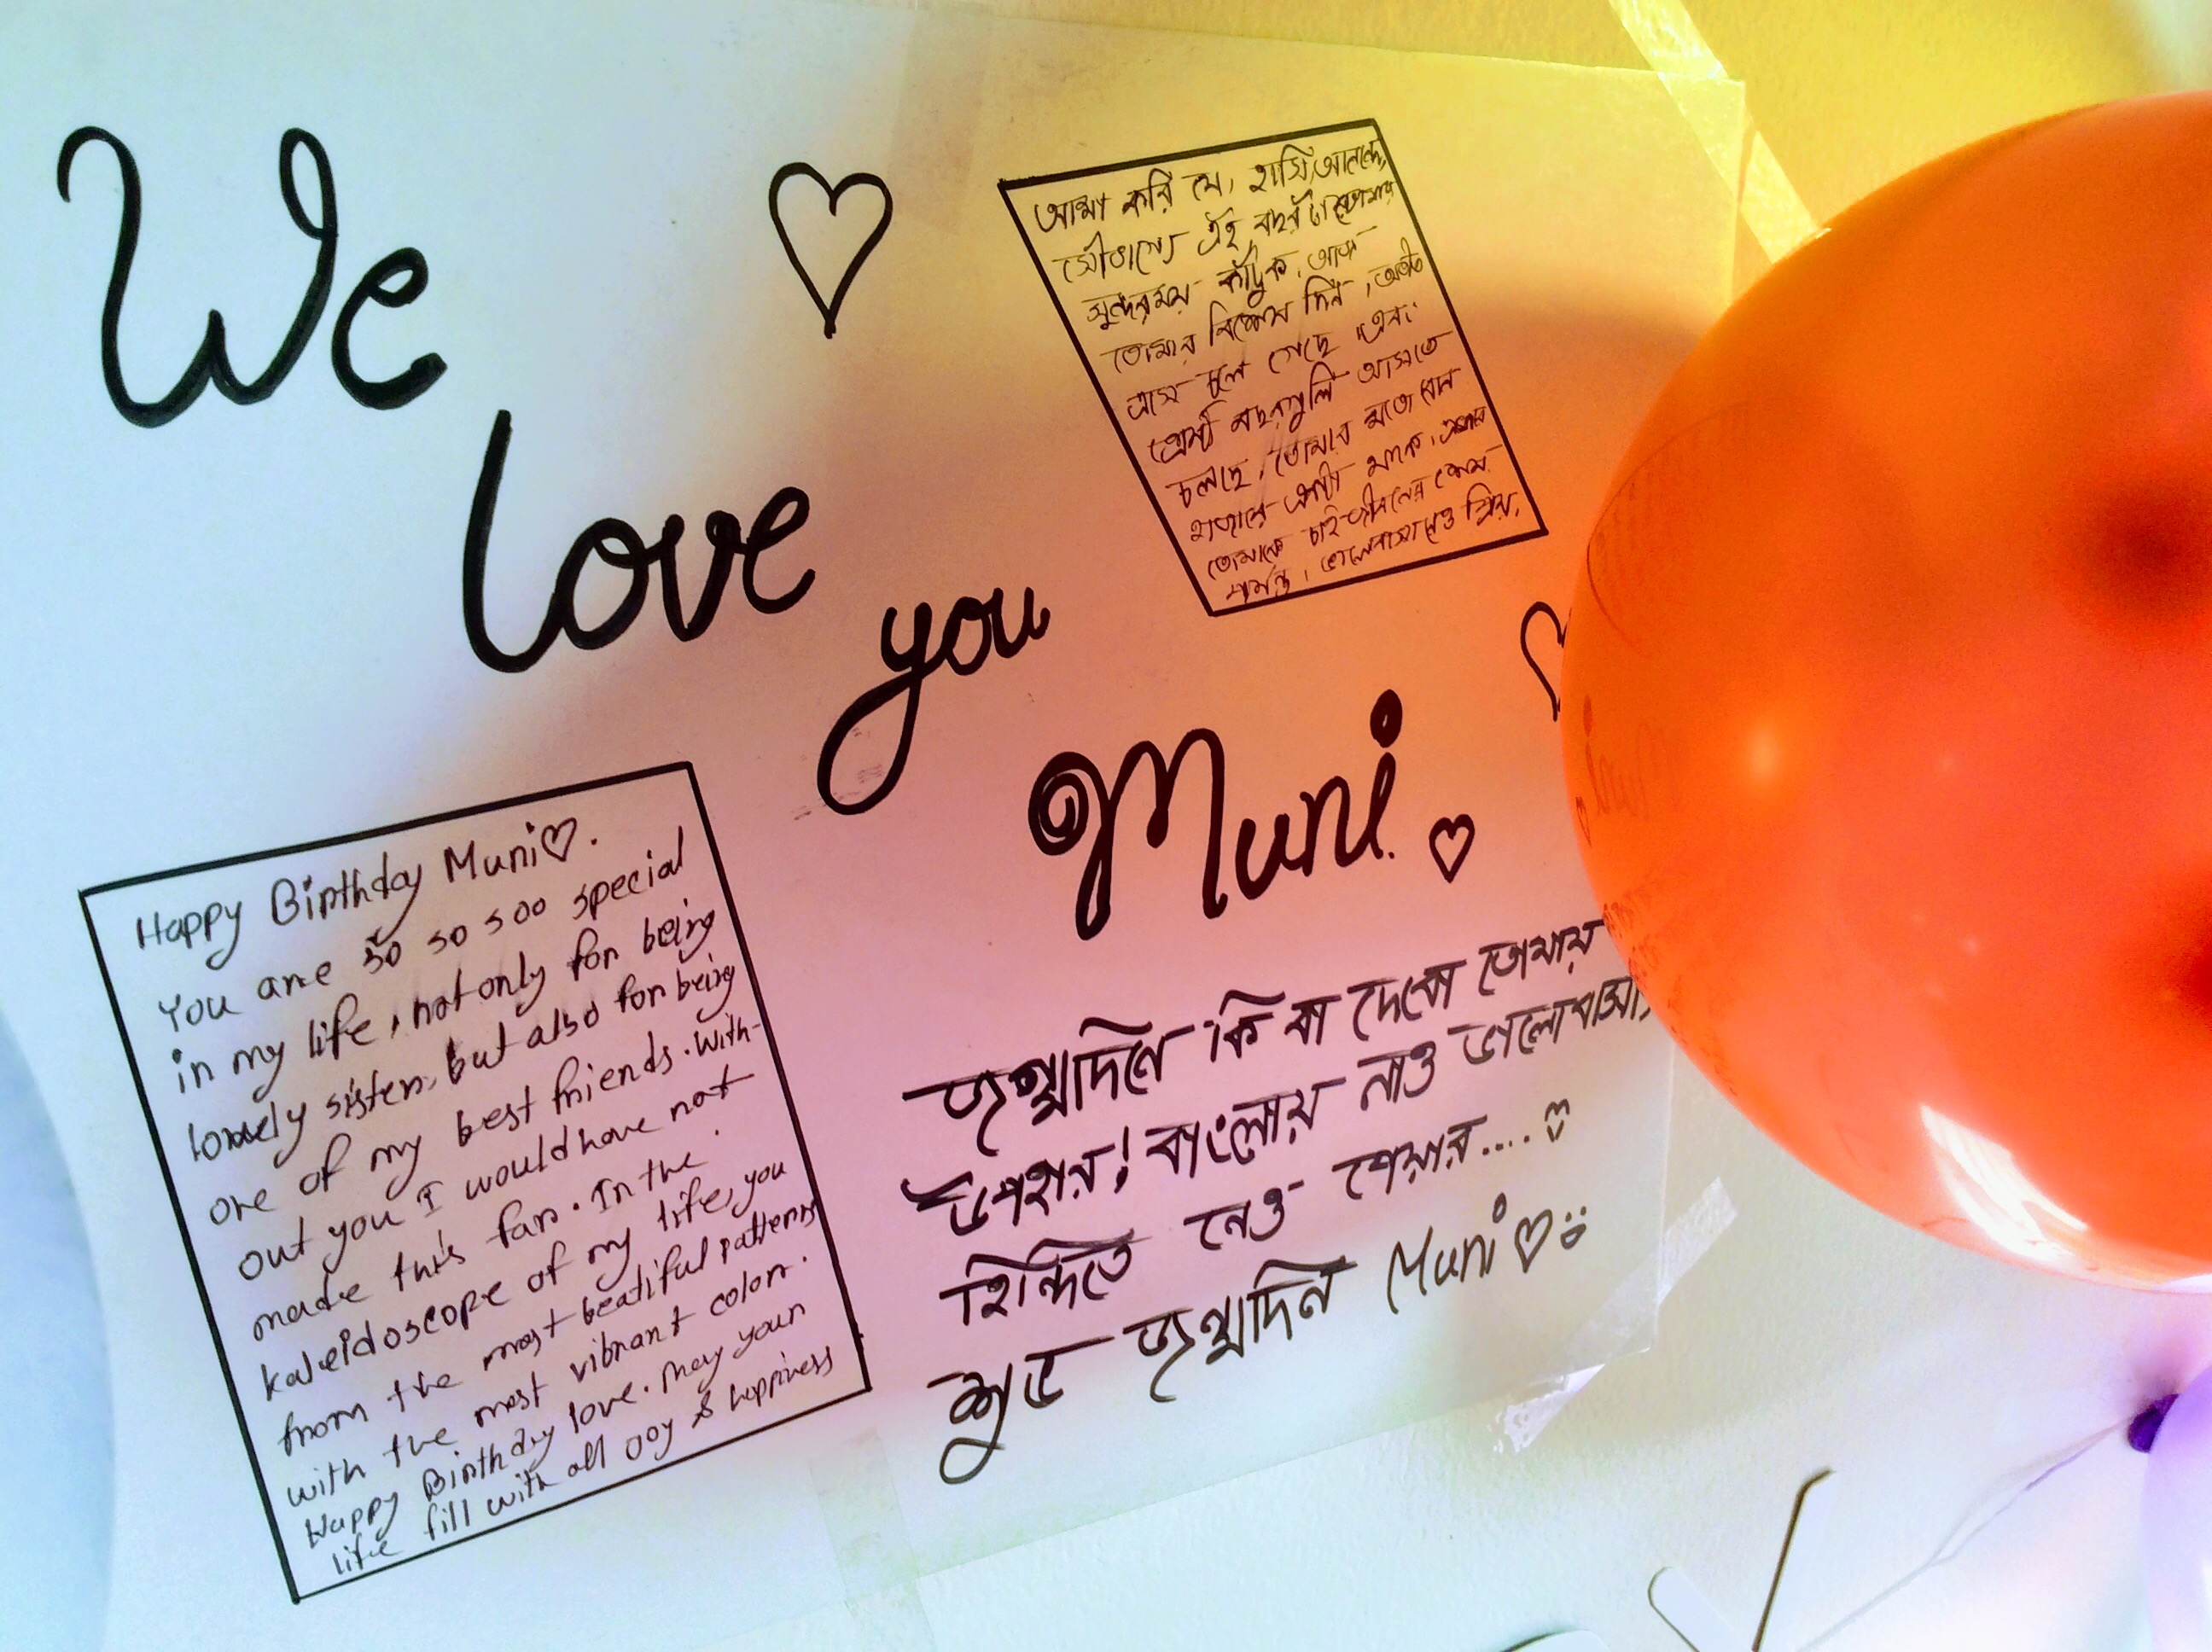 We
love
you
Muni
আশা করি যে, হাসি, আনন্দে,
সৌভাগ্যে এই বছরটা তোমার
সুন্দরময় কাটুক, আজ
তোমার বিশেষ দিন,
চলে গেছে এবং
শ্রেষ্ঠ বছরগুলি আসতে
চলছে, তোমার মতো বোন
হাজারে একটা থাকে,
তোমাকে চাই জীবনের শেষ
পর্যন্ত। ভালোবাসা নেও প্রিয়,
Happy Birthday Muni♡.
You are so so soo special
in my life, not only for being
lovely sister, but also for being
one of my best friends. With-
out you I would have not
made this far. In the
kaleidoscope of my life, you
from the most beatiful patterns
with the most vibrant color.
Happy Birthday love. May your
life fill with all joy & happiness
জন্মদিনে কি বা দেবো তোমায়
উপহার! বাংলায় নাও ভালোবাসা,
হিন্দিতে নেও পেয়ার....
শুভ জন্মদিন Muni♡